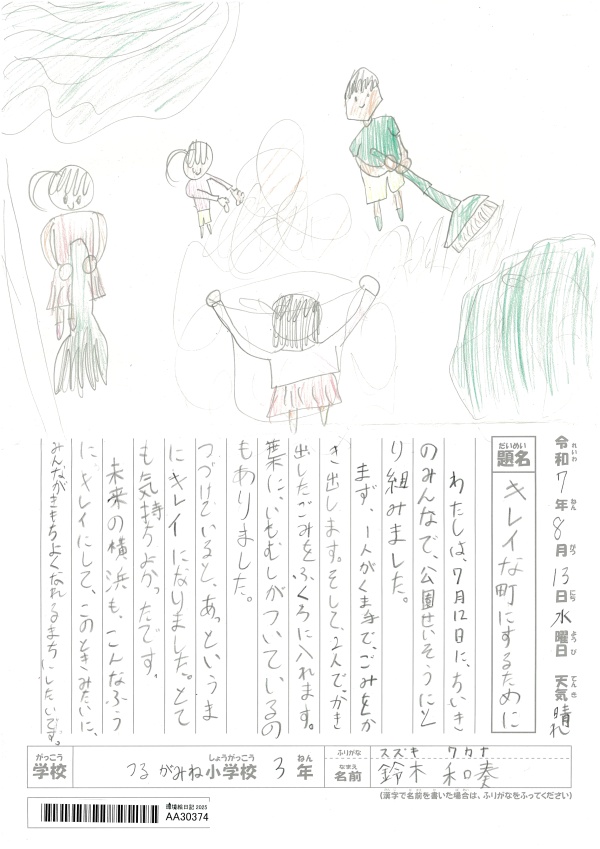 令和7年8月13日水曜日 天気 晴れ
れいわ ねん がつ にち ようび てんき
だいめい
題名 キレイな町にするために
わたしは、7月12日に、ちいき
のみんなで、公園せいそうにと
り組みました。
まず、1人がくま手で、ごみをか
き出します。そして、2人で、かき
出したごみをふくろに入れます。
葉に、いもむしがついているの
もありました。
つづけていると、あっというま
にキレイになりました。とて
も気持ちよかったです。
未来の横浜も、こんなふう
に、キレイにして、このときみたいに、
みんながきもちよくなれるまちにしたいです。
がっこう しょうがっこう ねん
学校 つるがみね小学校 3年
ふりがな スズキ ワカナ
なまえ
名前 鈴木 和奏
(漢字で名前を書いた場合は、ふりがなをふってください)
環境絵日記2025
AA30374